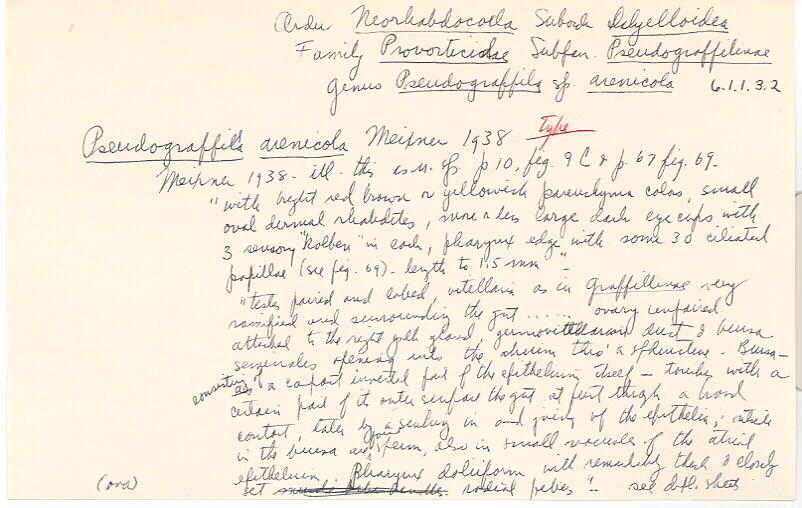 Order Neorhabdocoela Subord Dalyelloidea
Family Provorticidae Subfam. Pseudograffillinae
genus Pseudograffilla sp. arenicola 6.1.1.3.2
Pseudograffilla arenicola Meixner 1938 Type
Meixner 1938 - ill. this as n. sp. p 10, fig. 9 C & p. 67 fig. 69.
"with bright red brown or yellowish parenchyma color, small
oval dermal rhabdites, more or less large dark eyecups with
3 sensory "Kolben" in each, pharynx edge with some 30 ciliated
papillae (see fig. 69) - length to 1.5 mm" -
"testes paired and lobed, vitellaria as in Graffillinae very
ramified and surrounding the gut ...... ovary unpaired
attached to the right yolk gland germovitellarian duct & bursa
seminalis opening into the atrium thro' a sphincter - Bursa -
consisting of a compact inverted part of the epithelium itself - touches with a
certain part of its outer surface the gut at first through a broad
contact, later by a in and of the epithelia;
in the bursa are sperm, also in small vacuoles of the atrial
epithelium. Pharynx doliiform with remarkably thick & closely
set radial fibers" - see d.fl. sheets
(ova)